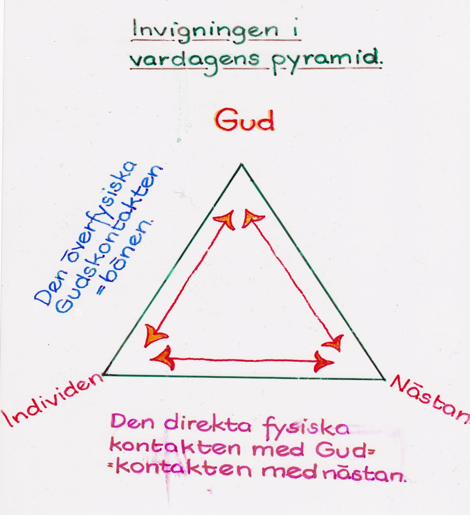 Invigningen i
vardagens pyramid.
Gud
Den överfysiska
Gudskontakten
=bönen.
Individen
Nästan
Den direkta fysiska
kontakten med Gud=
=kontakten med nästan.